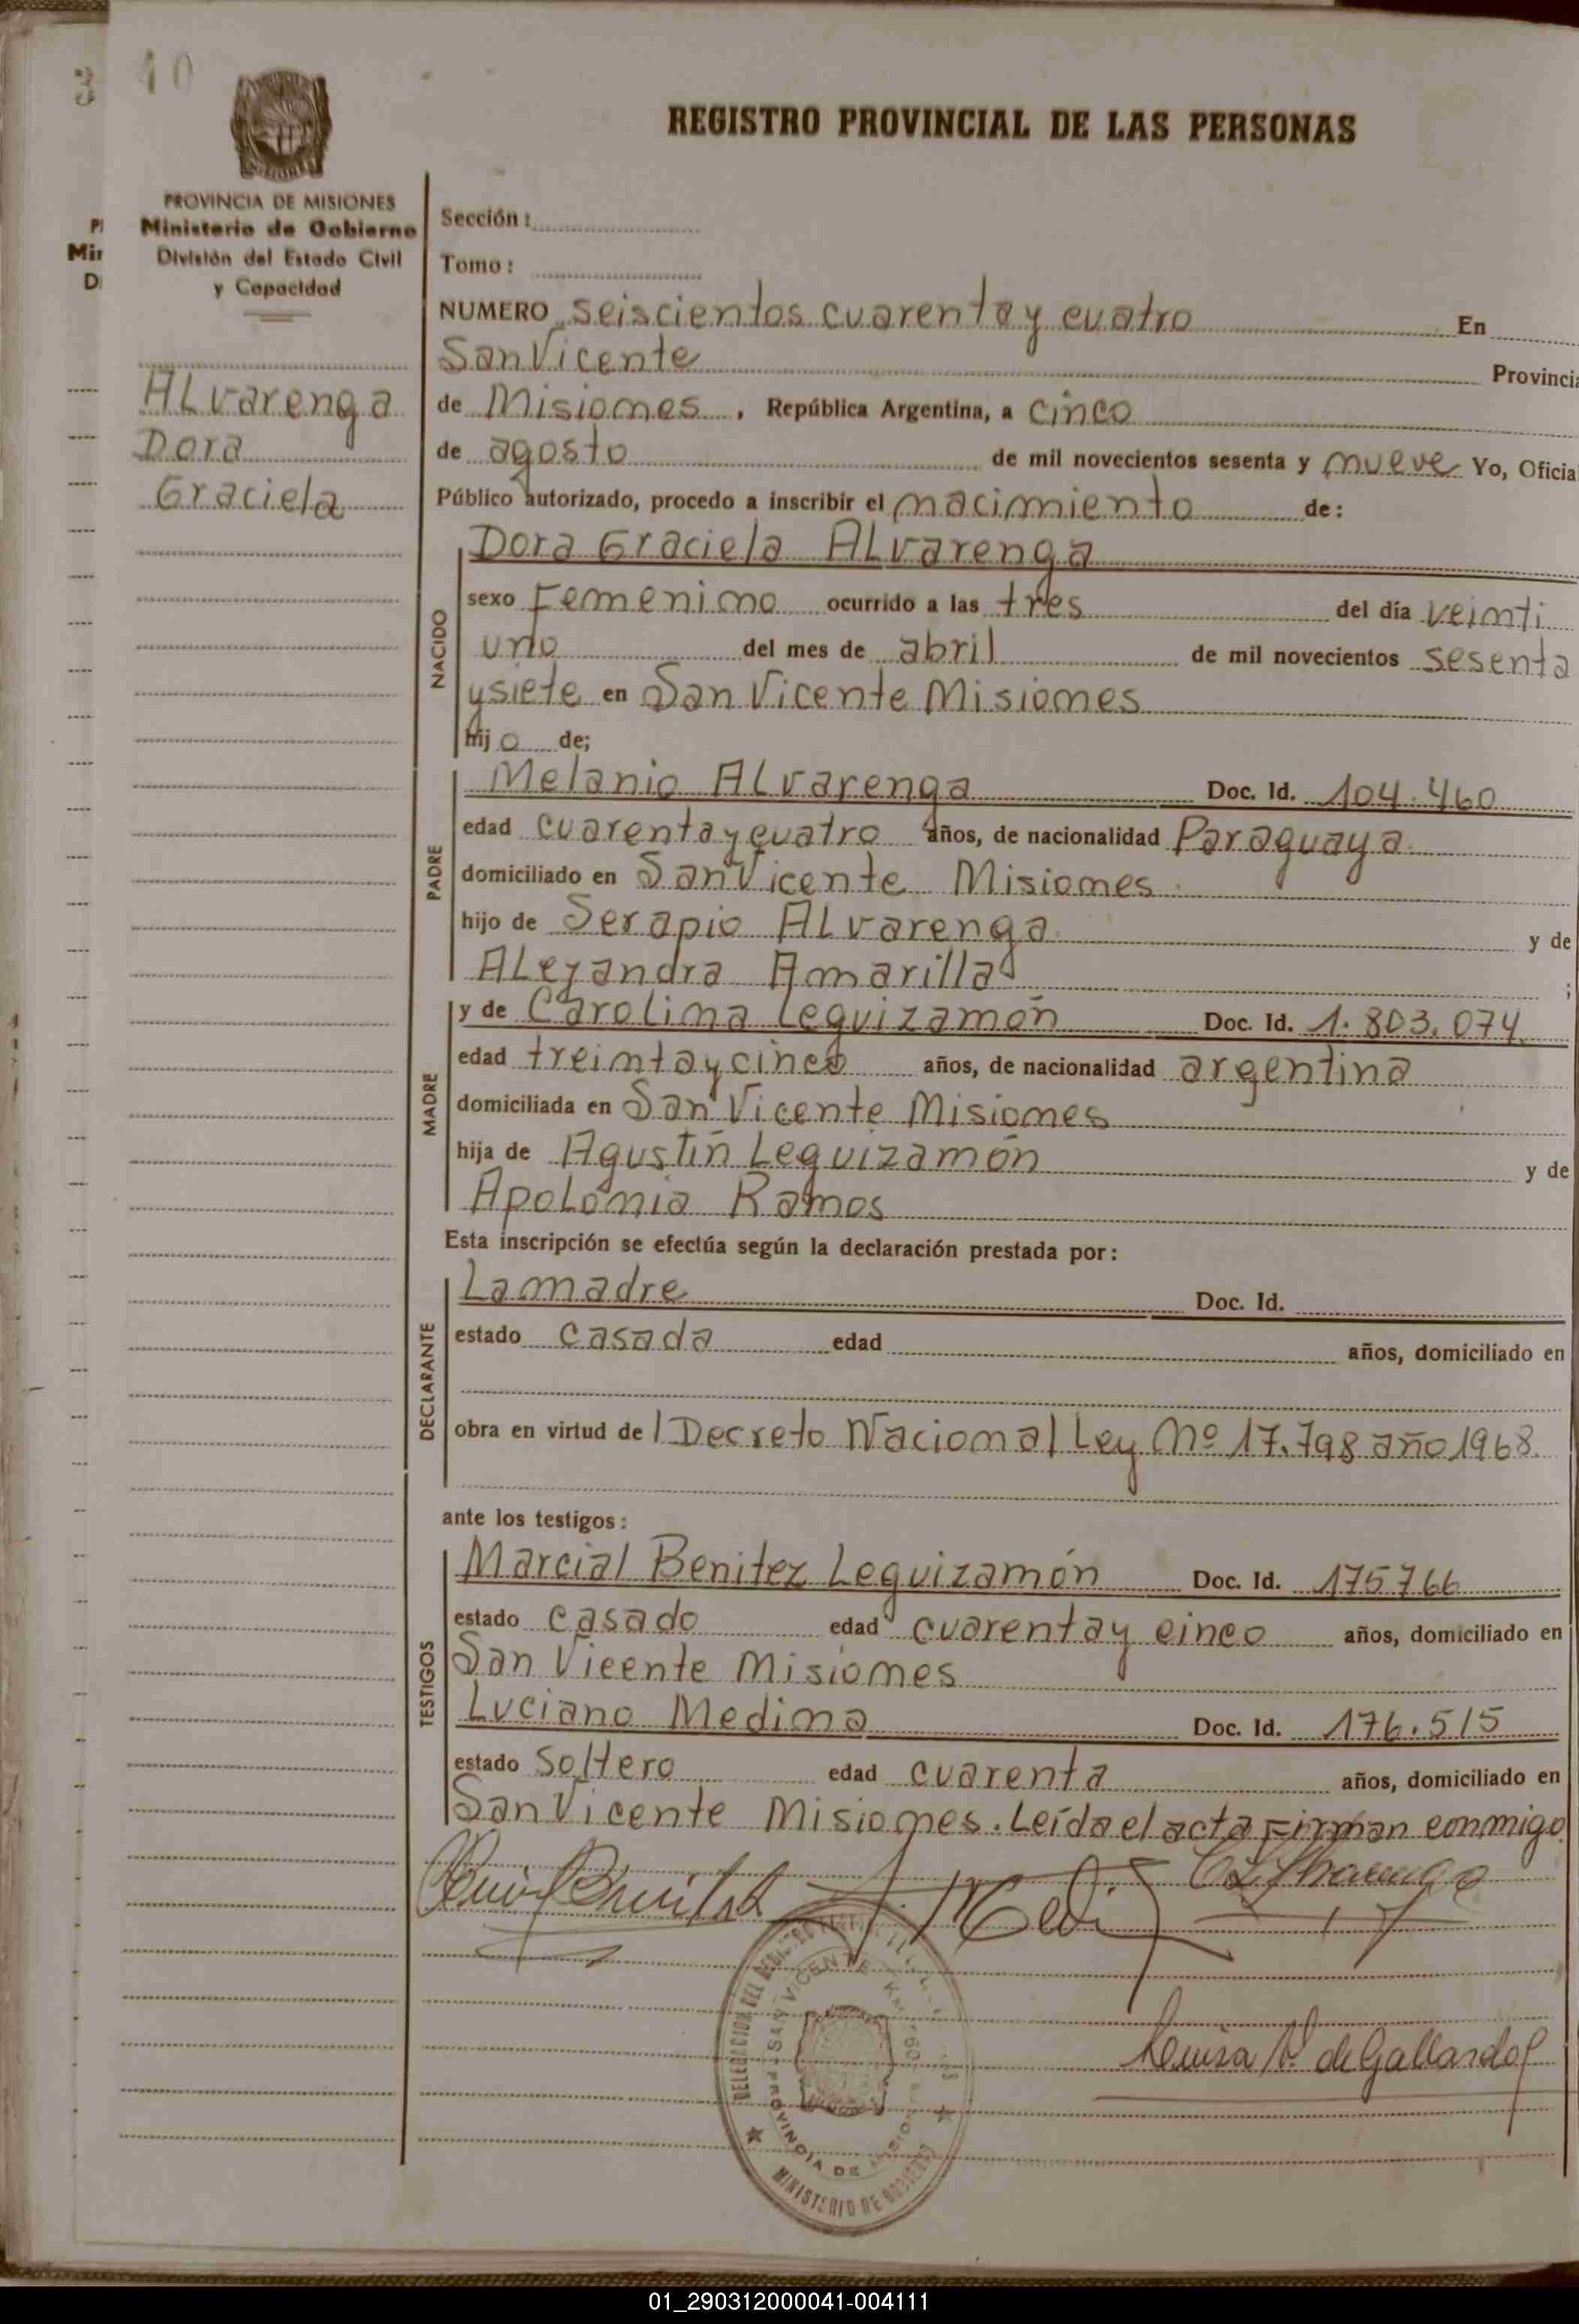 10
REGISTRO PROVINCIAL DE LAS PERSONAS
PROVINCIA DE MISIONES
Ministerio de Gobierno
División del Estado Civil
y Capacidad
Alvarenga
Dora
Graciela
Sección:
Tomo:
NUMERO seiscientos cuarenta y cuatro En
San Vicente Provincia
de Misiones, República Argentina, a cinco
de agosto de mil novecientos sesenta y nueve Yo, Oficia
Público autorizado, procedo a inscribir el nacimiento de:
Dora Graciela Alvarenga
NACIDO
sexo Femenino ocurrido a las tres del día veinti
uno del mes de abril de mil novecientos sesenta
y siete en San Vicente Misiones
hijo de;
PADRE
Melanio Alvarenga Doc. Id. 104.460
edad cuarenta y cuatro años, de nacionalidad Paraguaya
domiciliado en San Vicente Misiones
hijo de Serapio Alvarenga y de
Aleyandra Amarilla ;
MADRE
y de Carolina Leguizamón Doc. Id. 1.803.074
edad treinta y cinco años, de nacionalidad argentina
domiciliada en San Vicente Misiones
hija de Agustín Leguizamón y de
Apolonia Ramos
Esta inscripción se efectúa según la declaración prestada por:
DECLARANTE
La madre Doc. Id.
estado casada edad años, domiciliado en
obra en virtud del Decreto Nacional Ley Nº 17.798 año 1968.
ante los testigos:
TESTIGOS
Marcial Benitez Leguizamón Doc. Id. 175766
estado casado edad cuarenta y cinco años, domiciliado en
San Vicente Misiones
Luciano Medina Doc. Id. 176.515
estado soltero edad cuarenta años, domiciliado en
San Vicente Misiones. Leída el acta Firman conmigo
de Gallardo
SAN VICENTE
PROVINCIA DE MISIONES
MINISTERIO DE GOBIERNO
01_290312000041-004111